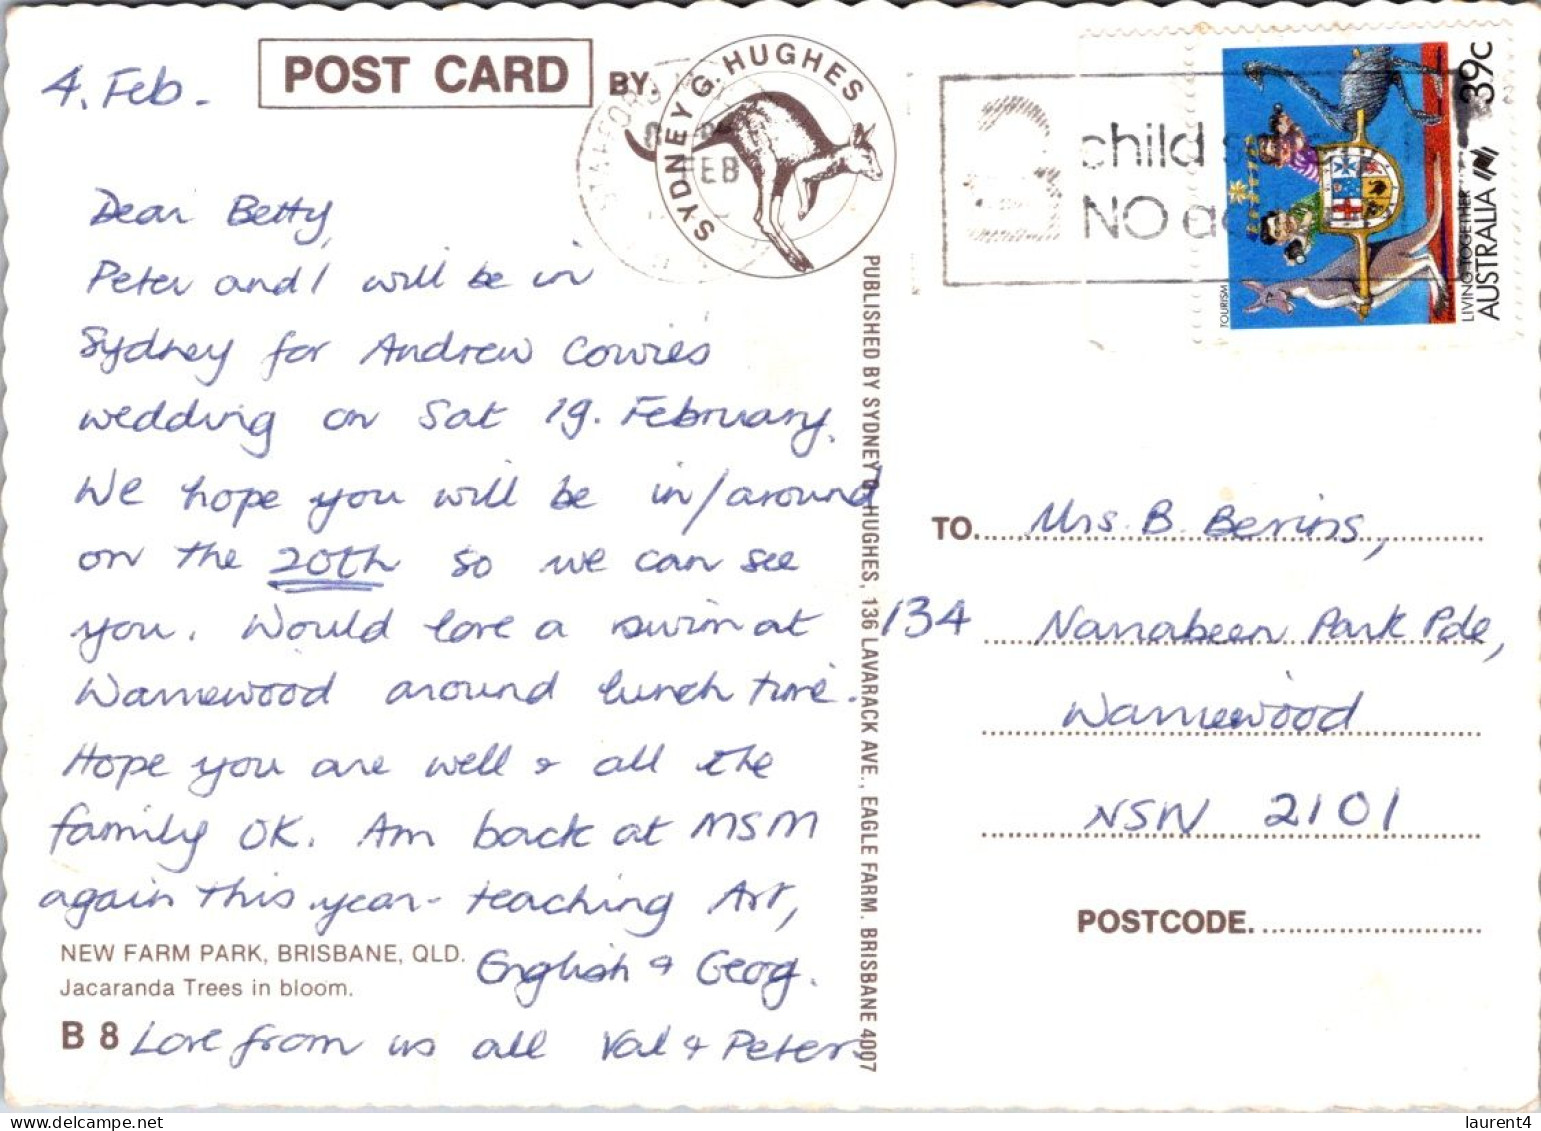 4. Feb.
POST CARD
BY.
SYDNEY G. HUGHES
STAFFORD
FEB
Dear Betty,
Peter and I will be in
Sydney for Andrew Cowies
wedding on Sat 19. February.
We hope you will be in/around
on the 20th so we can see
you. Would love a swim at
Warriewood around lunch time.
Hope you are well & all the
family OK. Am back at MSM
again this year - teaching Art,
English & Geog.
Love from us all Val & Peter
NEW FARM PARK, BRISBANE, QLD.
Jacaranda Trees in bloom.
B 8
PUBLISHED BY SYDNEY G. HUGHES, 136 LAVARACK AVE., EAGLE FARM. BRISBANE 4007
child
NO
39c
TOURISM
LIVING TOGETHER
AUSTRALIA
TO. Mrs. B. Berins,
134 Narrabeen Park Pde,
Warriewood
NSW 2101
POSTCODE.
laurent4